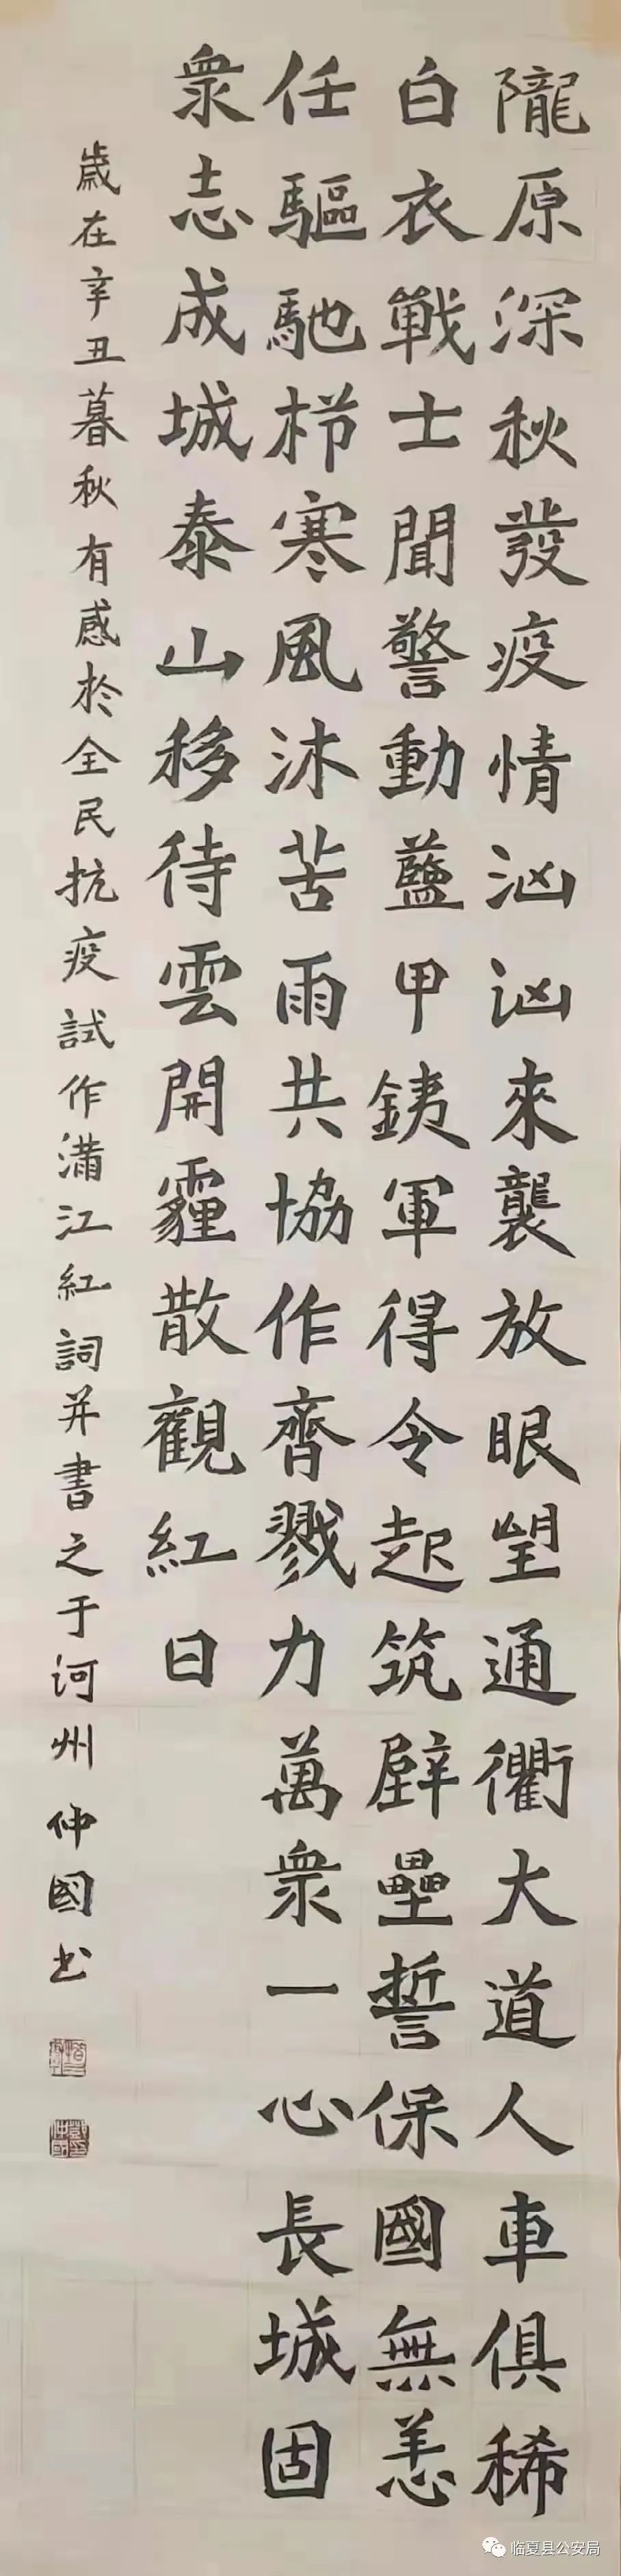 隴原深秋發疫情汹汹來襲放眼望通衢大道人車俱稀
白衣戰士聞警動藍甲銕軍得令起筑壁壘誓保國無恙
任驅馳栉寒風沐苦雨共協作齊戮力萬衆一心長城固
衆志成城泰山移待雲開霾散觀紅日
歲在辛丑暮秋有感於全民抗疫試作滿江紅詞并書之于河州仲國书
临夏县公安局